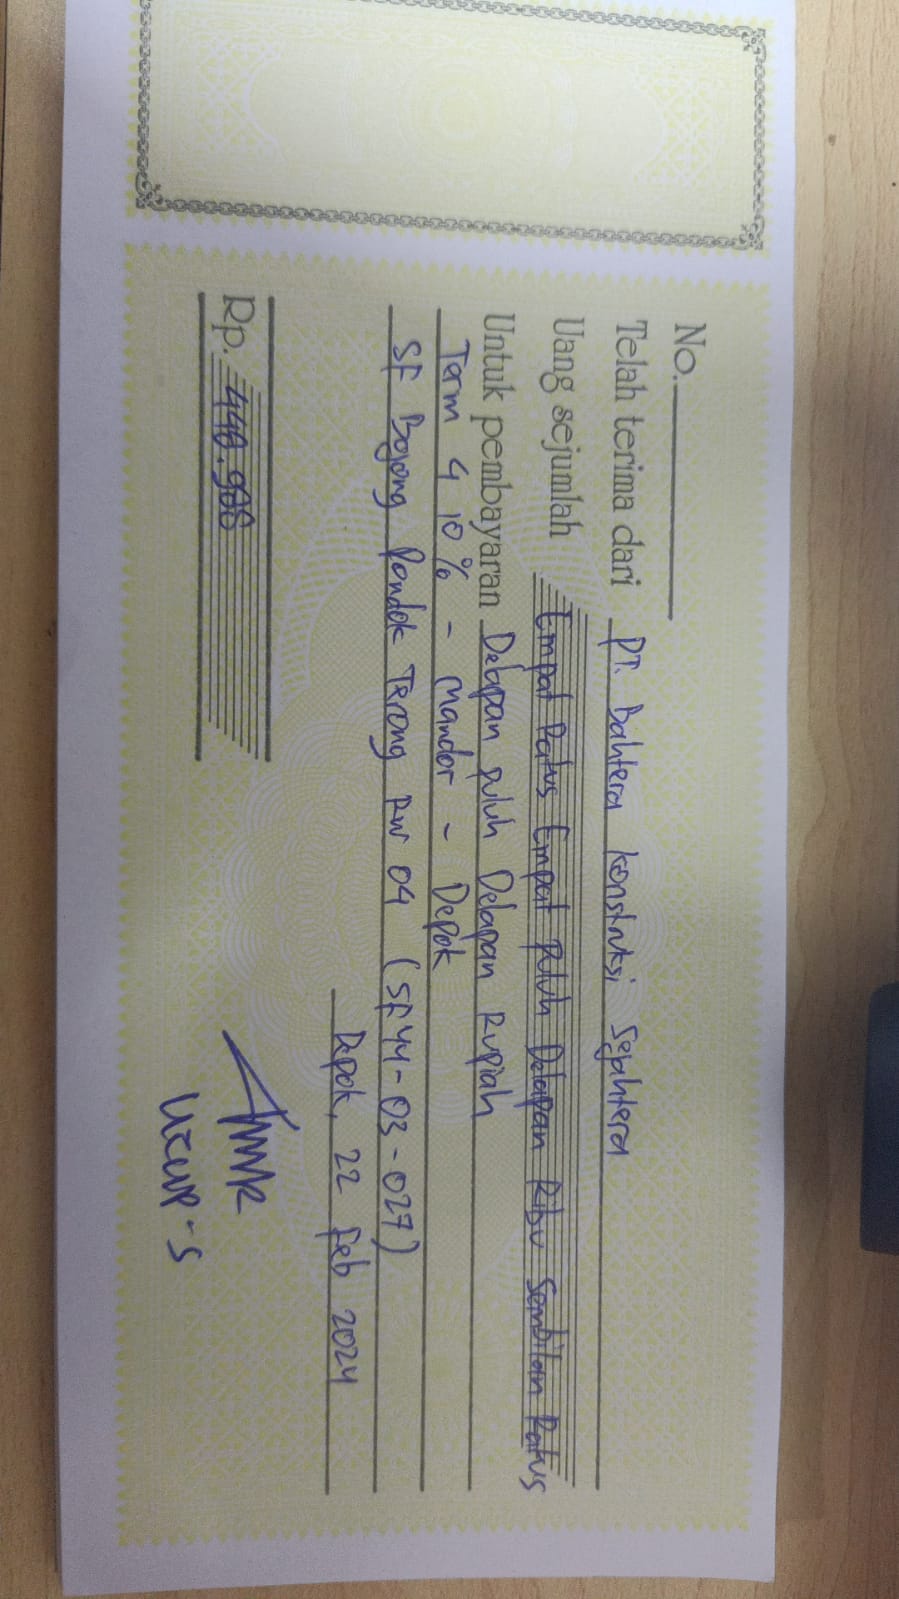 No.
Telah terima dari PT. Bahtera Konstruksi Sejahtera
Uang sejumlah Empat Ratus Empat puluh Delapan Ribu Sembilan Ratus
Untuk pembayaran Delapan puluh Delapan Rupiah
Term 4 10% - Mandor - Depok
SF Bojong Pondok Terong RW 04 (SF44-03-027)
Depok, 22 Feb 2024
Rp.